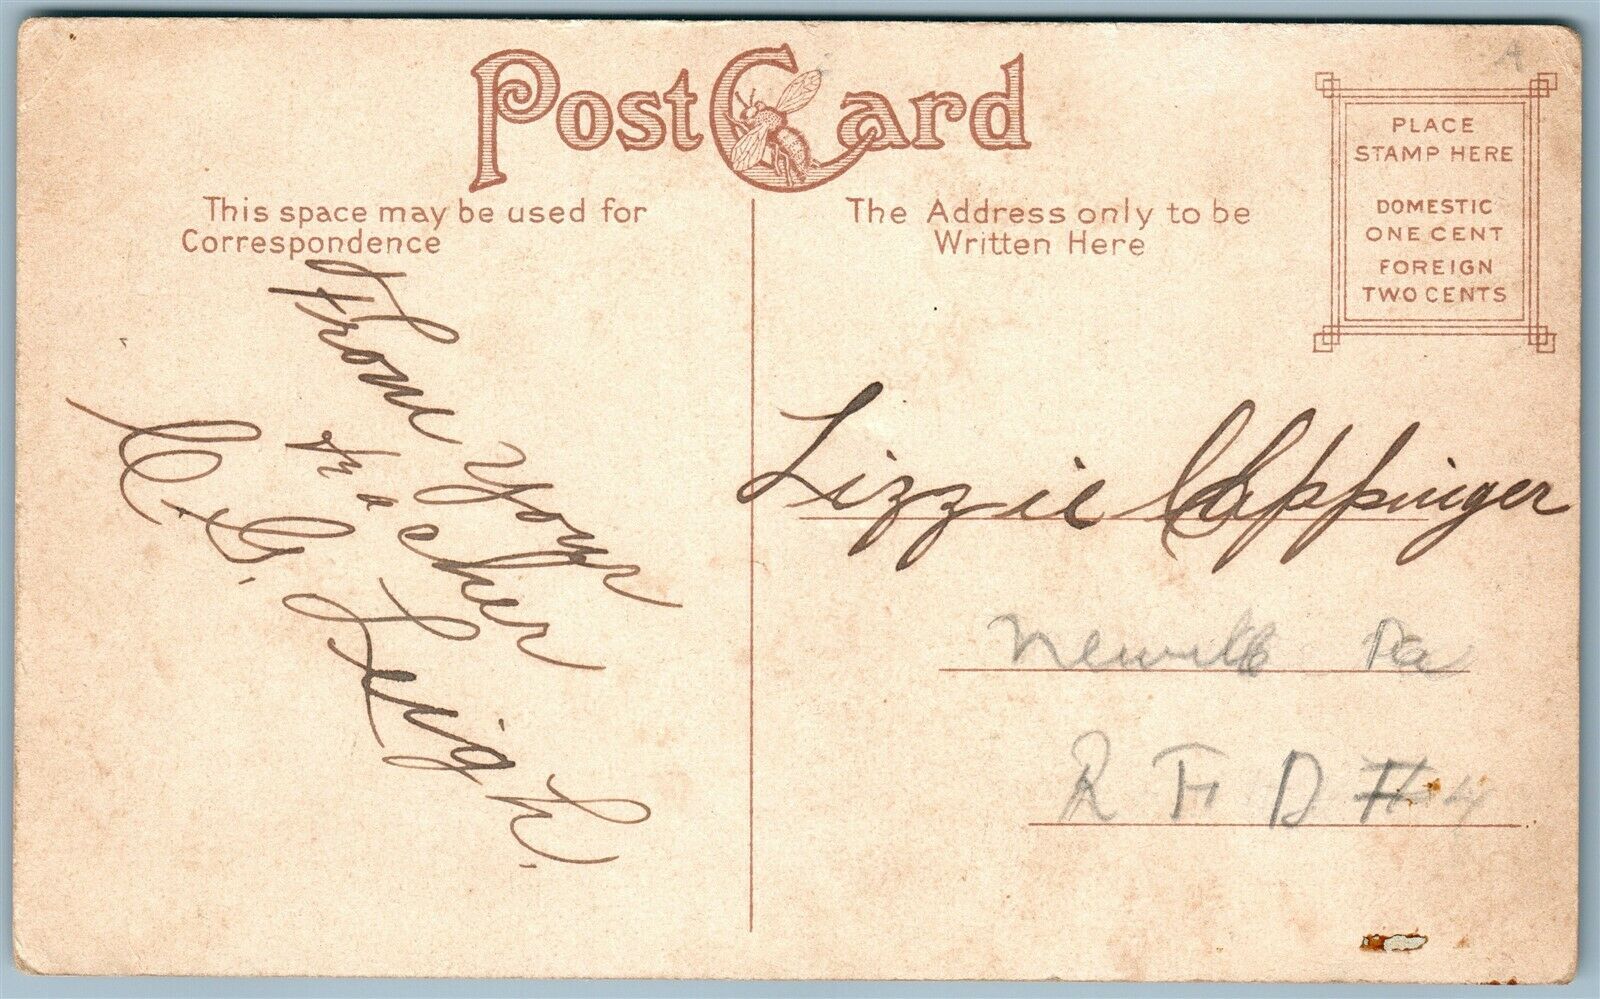 Post Card
This space may be used for
Correspondence
The Address only to be
Written Here
PLACE
STAMP HERE
DOMESTIC
ONE CENT
FOREIGN
TWO CENTS
From Your
Teacher
C. G. Leigh.
Lizzie Clippinger
Newville Pa
R F D #4